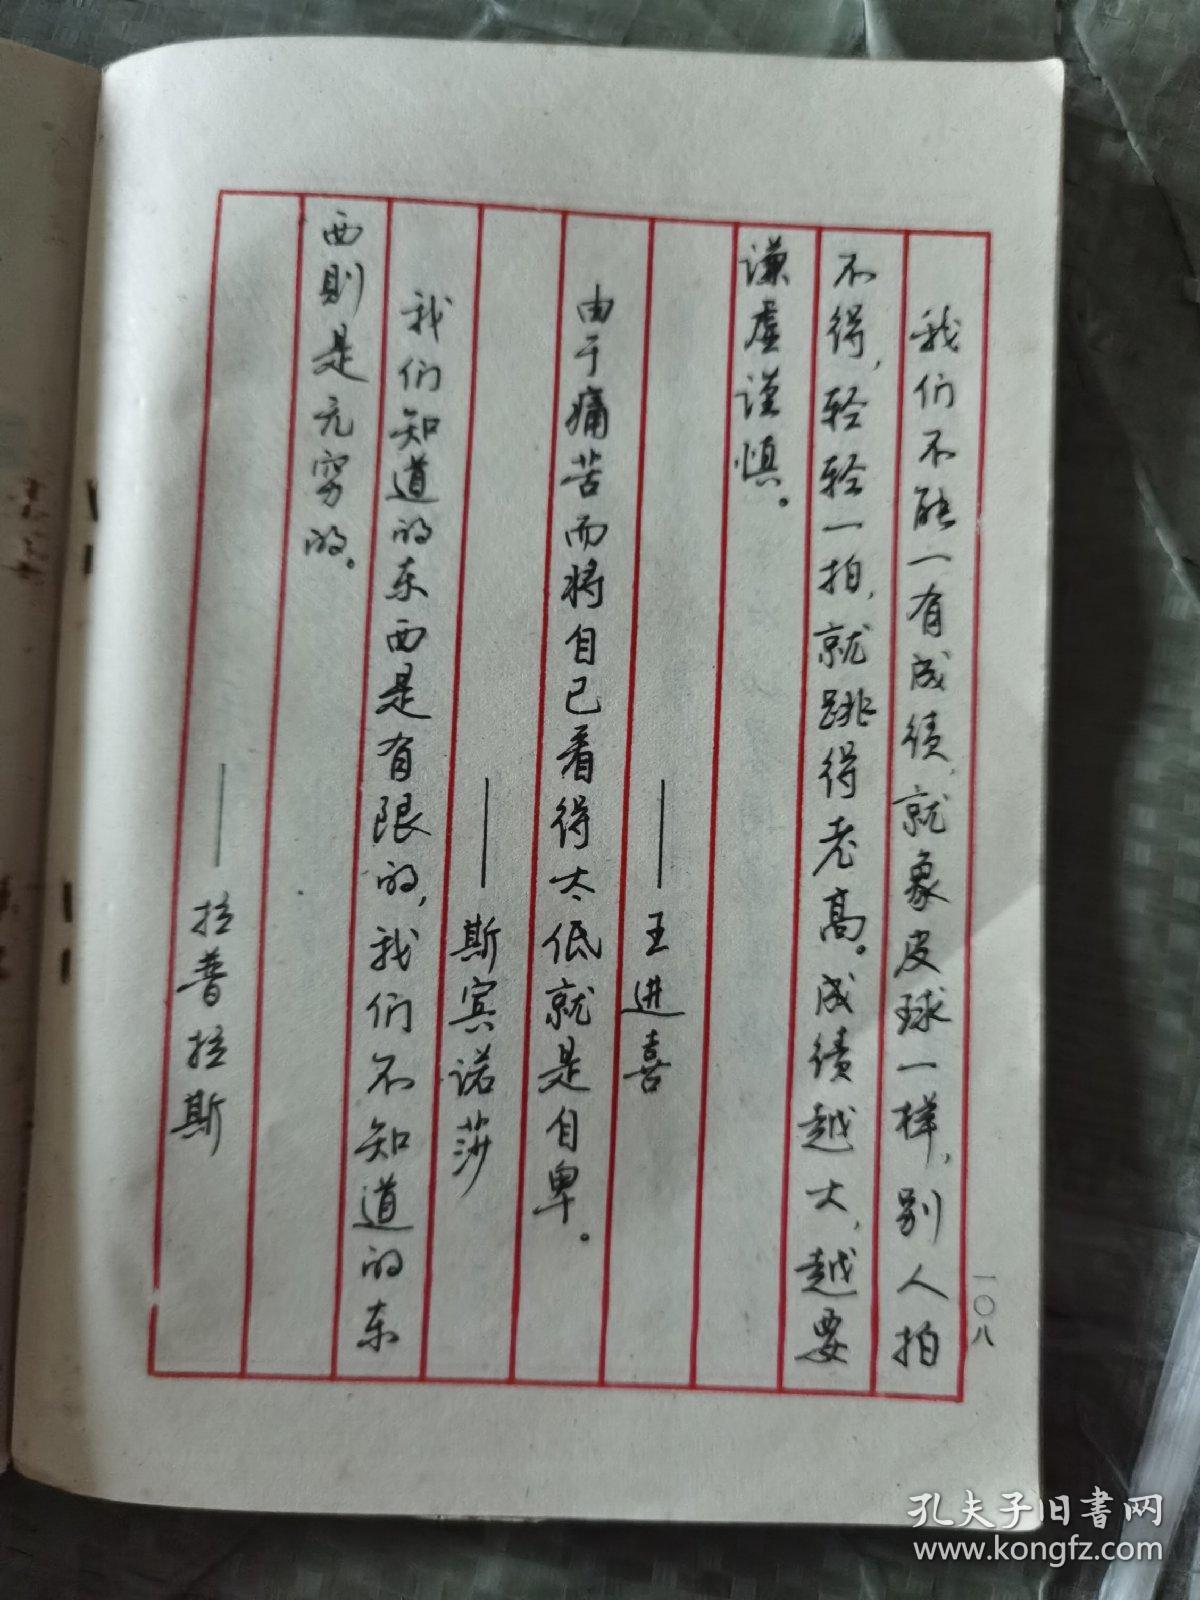 我们不能一有成绩,就象皮球一样,别人拍
不得,轻轻一拍,就跳得老高。成绩越大,越要
谦虚谨慎。
——王进喜
由于痛苦而将自己看得太低就是自卑。
——斯宾诺莎
我们知道的东西是有限的,我们不知道的东
西则是无穷的。
——拉普拉斯
一〇八
孔夫子旧书网
www.kongfz.com